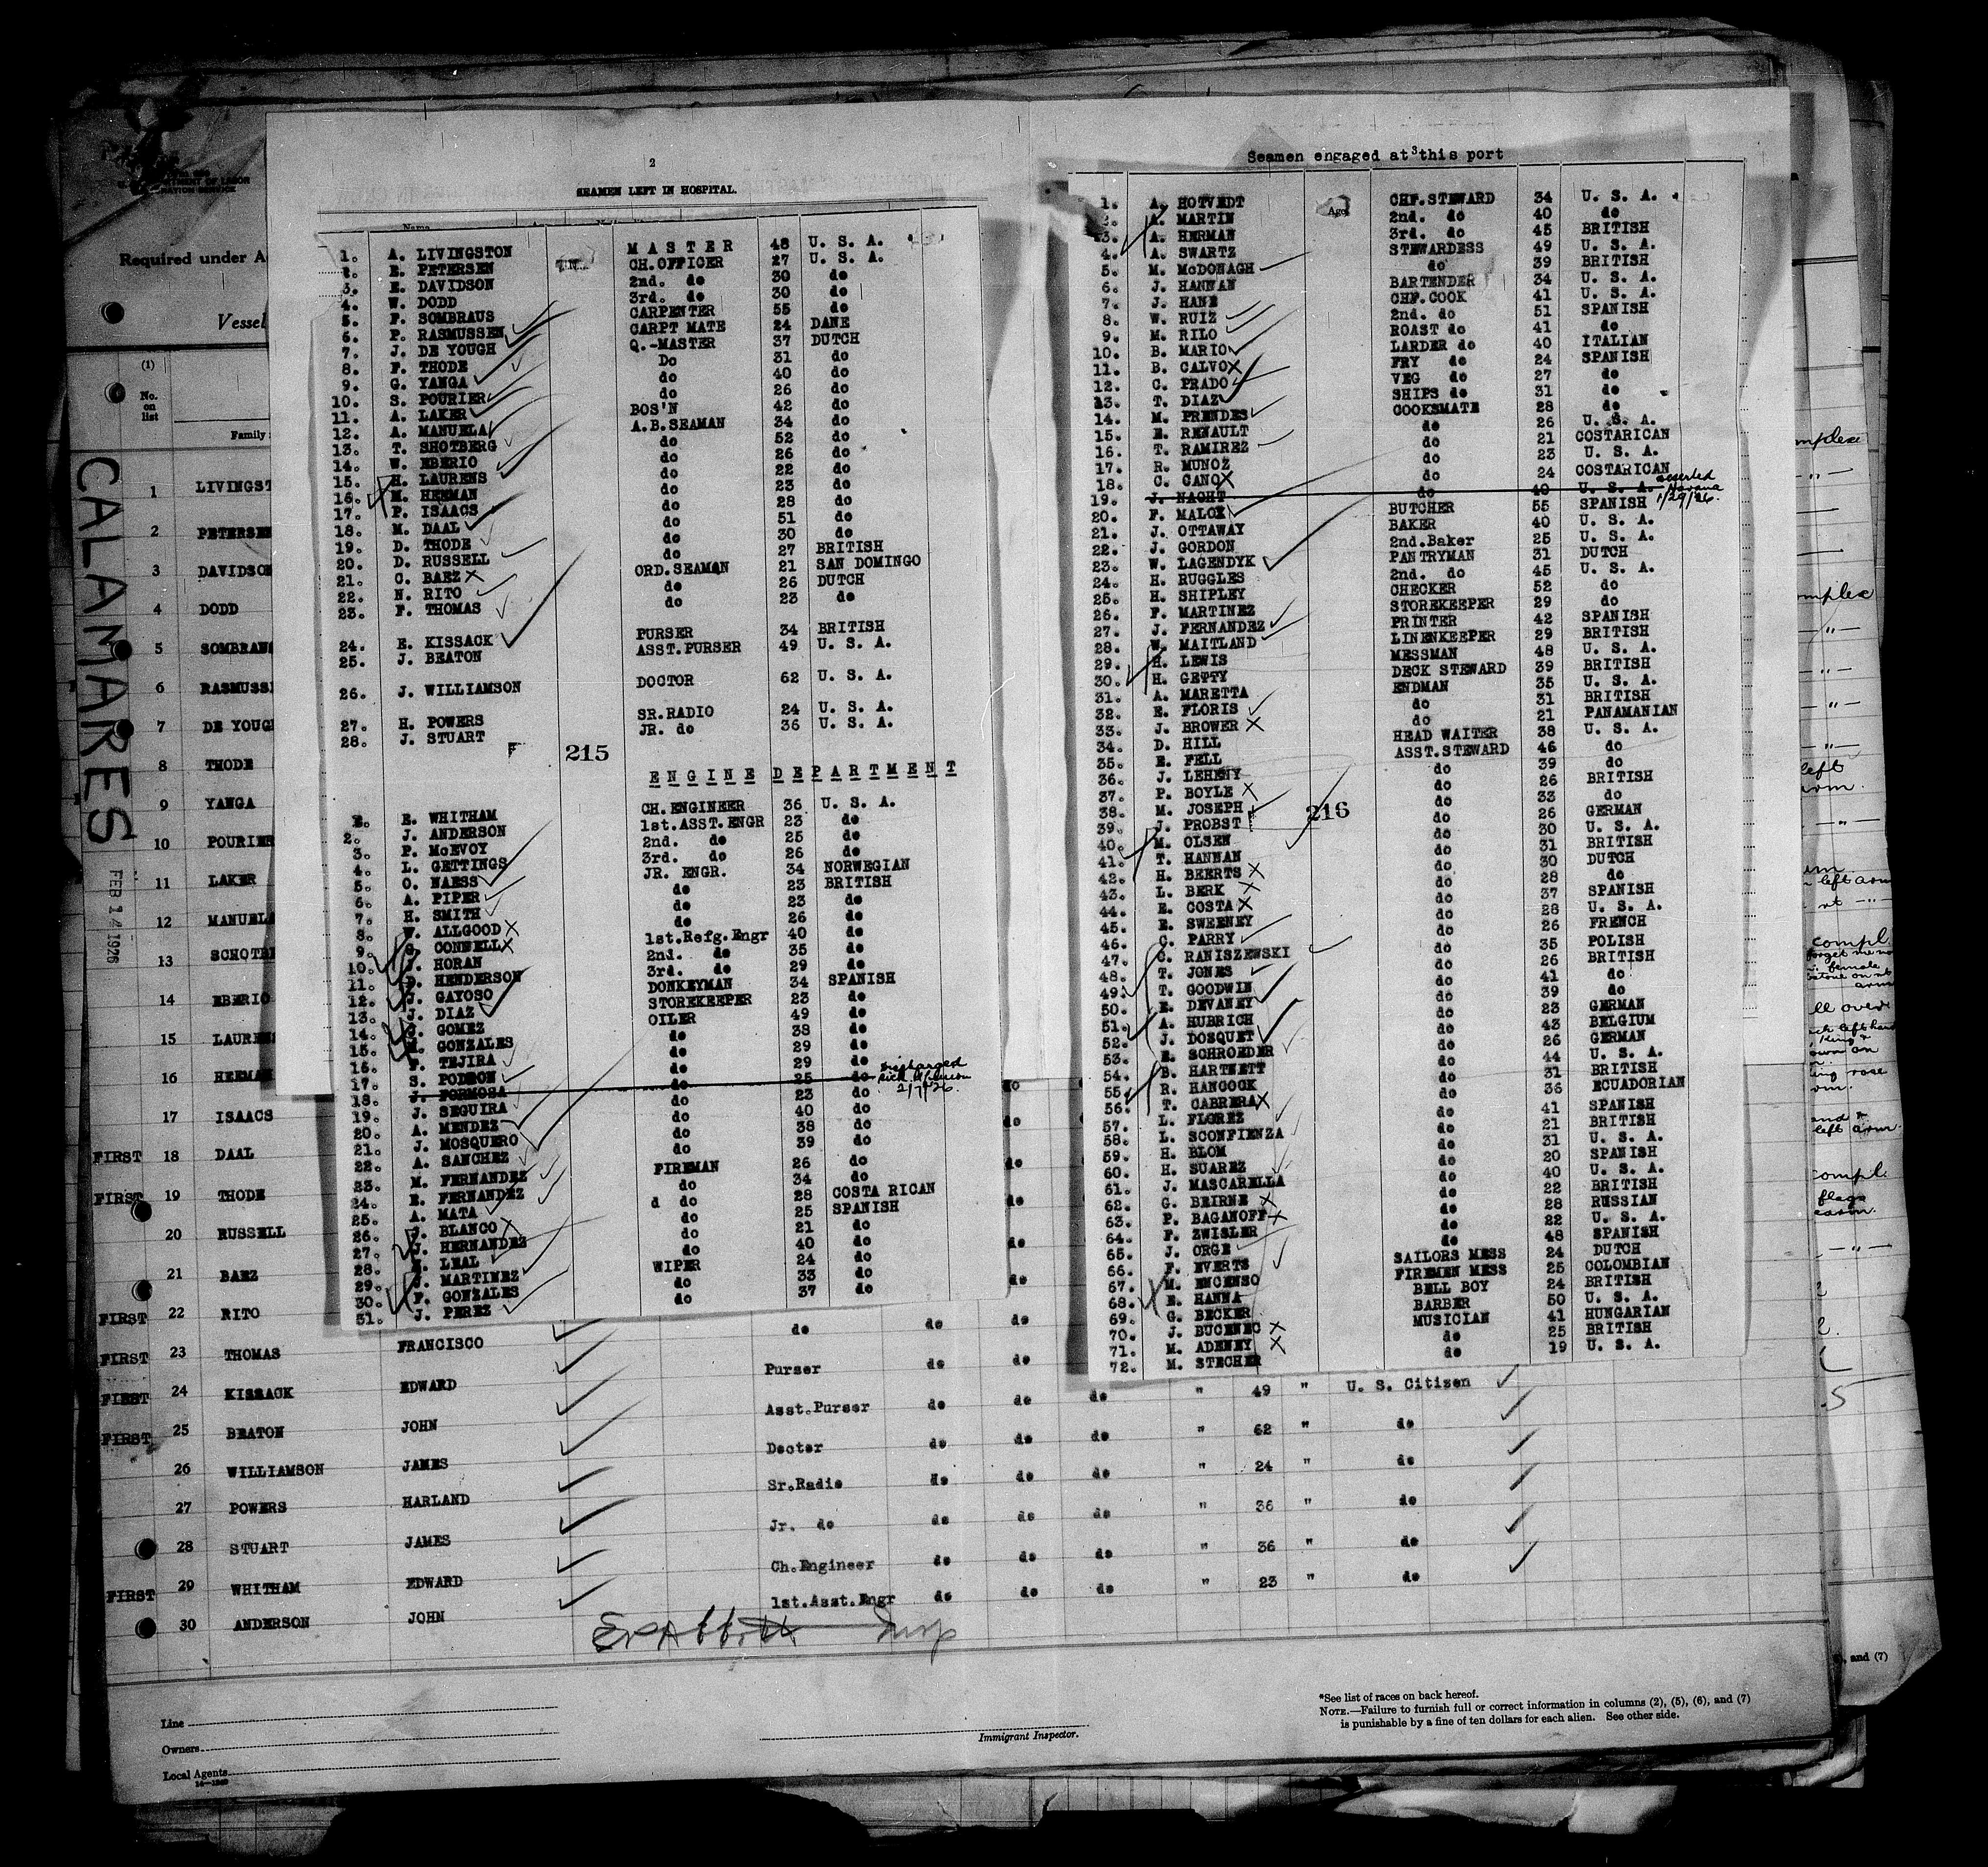 2
SEAMEN LEFT IN HOSPITAL.
1. A. LIVINGSTON MASTER 48 U. S. A.
2. E. PETERSEN CH.OFFICER 27 U. S. A.
3. E. DAVIDSON 2nd. do 30 do
4. W. DODD 3rd. do 30 do
5. F. SOMBRAUS CARPENTER 55 do
6. P. RASMUSSEN CARPT MATE 24 DANE
7. J. DE YOUGH Q.-MASTER 37 DUTCH
8. F. THODE Do 31 do
9. G. YANGA do 40 do
10. S. POURIER do 26 do
11. A. LAKER BOS'N 42 do
12. A. MANUELA A.B.SEAMAN 34 do
13. T. SHOTBERG do 52 do
14. W. EBERIO do 26 do
15. H. LAURENS do 22 do
16. M. HEEMAN do 23 do
17. P. ISAACS do 28 do
18. M. DAAL do 51 do
19. D. THODE do 30 do
20. D. RUSSELL do 27 BRITISH
21. C. BAEZ ORD.SEAMAN 21 SAN DOMINGO
22. N. RITO do 26 DUTCH
23. F. THOMAS do 23 do
24. E. KISSACK PURSER 34 BRITISH
25. J. BEATON ASST.PURSER 49 U. S. A.
26. J. WILLIAMSON DOCTOR 62 U. S. A.
27. H. POWERS SR.RADIO 24 U. S. A.
28. J. STUART JR. do 36 U. S. A.
215
ENGINE DEPARTMENT
E. WHITHAM CH.ENGINEER 36 U. S. A.
2. J. ANDERSON 1st.ASST.ENGR 23 do
3. P. McEVOY 2nd. do 25 do
4. L. GETTINGS 3rd. do 26 do
5. O. NAESS JR. ENGR. 34 NORWEGIAN
6. A. PIPER do 23 BRITISH
7. H. SMITH do 23 do
8. W. ALLGOOD do 26 do
9. CONNELL 1st.Refg.Engr 40 do
10. HORAN 2nd. do 35 do
11. HENDERSON 3rd. do 29 do
12. J. GAYOSO DONKEYMAN 34 SPANISH
13. J. DIAZ STOREKEEPER 23 do
14. GOMEZ OILER 49 do
15. M. GONZALES do 38 do
16. F. TEJIRA do 29 do
17. S. PODRON do 29 do
18. J. FORMOSA do 25 do discharged 2/7/26.
19. J. SEGUIRA do 23 do
20. A. MENDEZ do 40 do
21. J. MOSQUERO do 38 do
22. A. SANCHEZ do 39 do
23. M. FERNANDEZ FIREMAN 26 do
24. E. FERNANDEZ do 34 do
25. A. MATA d do 28 COSTA RICAN
26. J. BLANCO do 25 SPANISH
27. J. HERNANDEZ do 21 do
28. LEAL do 40 do
29. J. MARTINEZ WIPER 24 do
30. F. GONZALES do 33 do
31. J. PEREZ do 37 do
Seamen engaged at 3 this port
Age
1. A. HOTVEDT CHF.STEWARD 34 U. S. A.
2. A. MARTIN 2nd. do 40 do
3. A. HERMAN 3rd. do 45 BRITISH
4. A. SWARTZ STEWARDESS 49 U. S. A.
5. M. McDONAGH do 39 BRITISH
6. J. HANNAN BARTENDER 34 U. S. A.
7. J. HANE CHF.COOK 41 U. S. A.
8. W. RUIZ 2nd. do 51 SPANISH
9. M. RILO ROAST do 41 do
10. B. MARIO LARDER do 40 ITALIAN
11. B. CALVO FRY do 24 SPANISH
12. C. PRADO VEG do 27 do
13. T. DIAZ SHIPS do 31 do
14. M. PRENDES COOKSMATE 28 do
15. E. RENAULT do 26 U. S. A.
16. T. RAMIREZ do 21 COSTARICAN
17. R. MUNOZ do 23 U. S. A.
18. C. CANO do 24 COSTARICAN
19. J. NACHT do 40 U. S. A. deserted Havana 1/29/26.
20. F. MALOX BUTCHER 55 SPANISH
21. J. OTTAWAY BAKER 40 U. S. A.
22. J. GORDON 2nd.Baker 25 U. S. A.
23. W. LAGENDYK PANTRYMAN 31 DUTCH
24. H. RUGGLES 2nd. do 45 U. S. A.
25. H. SHIPLEY CHECKER 52 do
26. F. MARTINEZ STOREKEEPER 29 do
27. J. FERNANDEZ PRINTER 42 SPANISH
28. W. MAITLAND LINENKEEPER 29 BRITISH
29. H. LEWIS MESSMAN 48 U. S. A.
30. H. GETTY DECK STEWARD 39 BRITISH
31. A. MARETTA ENDMAN 35 U. S. A.
32. E. FLORIS do 31 BRITISH
33. J. BROWER do 21 PANAMANIAN
34. D. HILL HEAD WAITER 38 U. S. A.
35. E. FELL ASST.STEWARD 46 do
36. J. LEHENY do 39 do
37. P. BOYLE do 26 BRITISH
38. M. JOSEPH do 33 do
39. J. PROBST do 26 GERMAN
216
40. M. OLSEN do 30 U. S. A.
41. T. HANNAN do 31 BRITISH
42. H. BEERTS do 30 DUTCH
43. L. BERK do 28 do
44. E. COSTA do 37 SPANISH
45. E. SWEENEY do 28 U. S. A.
46. C. PARRY do 26 FRENCH
47. C. RANISZEWSKI do 35 POLISH
48. T. JONES do 26 BRITISH
49. T. GOODWIN do 41 do
50. E. DEVANEY do 39 do
51. A. HUBRICH do 23 GERMAN
52. J. DOSQUET do 43 BELGIUM
53. E. SCHROEDER do 26 GERMAN
54. B. HARTNETT do 44 U. S. A.
55. R. HANCOCK do 31 BRITISH
56. T. CABRERA do 36 ECUADORIAN
57. L. FLOREZ do 41 SPANISH
58. L. SCONFIENZA do 21 BRITISH
59. H. BLOM do 31 U. S. A.
60. H. SUAREZ do 20 SPANISH
61. J. MASCARELLA do 40 U. S. A.
62. G. BEIRNE do 22 BRITISH
63. P. BAGANOFF do 28 RUSSIAN
64. F. ZWISLER do 22 U. S. A.
65. J. ORGE do 48 SPANISH
66. F. EVERTS SAILORS MESS 24 DUTCH
67. M. ENCENSO FIREMEN MESS 25 COLOMBIAN
68. E. HANNA BELL BOY 24 BRITISH
69. G. BECKER BARBER 50 U. S. A.
70. J. BUCENEC MUSICIAN 41 HUNGARIAN
71. M. ADENEY do 25 BRITISH
72. M. STECHER do 19 U. S. A.
Required under A
Vessel
(1)
No. on list
Family
CALAMARES
FEB 14 1926
1 LIVINGST
2 PETERSE
3 DAVIDSON
4 DODD
5 SOMBRAN
6 RASMUSS
7 DE YOUG
8 THODE
9 YANGA
10 POURIER
11 LAKER
12 MANUELA
13 SCHOTBE
14 EBERIO
15 LAURENS
16 HEEMAN
17 ISAACS
FIRST 18 DAAL
FIRST 19 THODE
20 RUSSELL
21 BAEZ
FIRST 22 RITO
FIRST 23 THOMAS FRANCISCO do do do
FIRST 24 KISSACK EDWARD Purser do do
FIRST 25 BEATON JOHN Asst.Purser do do do " 49 " U. S. Citizen
26 WILLIAMSON JAMES Doctor do do do " 62 " do
27 POWERS HARLAND Sr.Radio do do do " 24 " do
28 STUART JAMES Jr. do do do do " 36 " do
FIRST 29 WHITHAM EDWARD Ch.Engineer do do do " 36 " do
30 ANDERSON JOHN 1st.Asst.Engr do do do " 23 " do
Line
Owners
Local Agents
Immigrant Inspector.
*See list of races on back hereof.
NOTE.—Failure to furnish full or correct information in columns (2), (5), (6), and (7)
is punishable by a fine of ten dollars for each alien. See other side.
and (7)